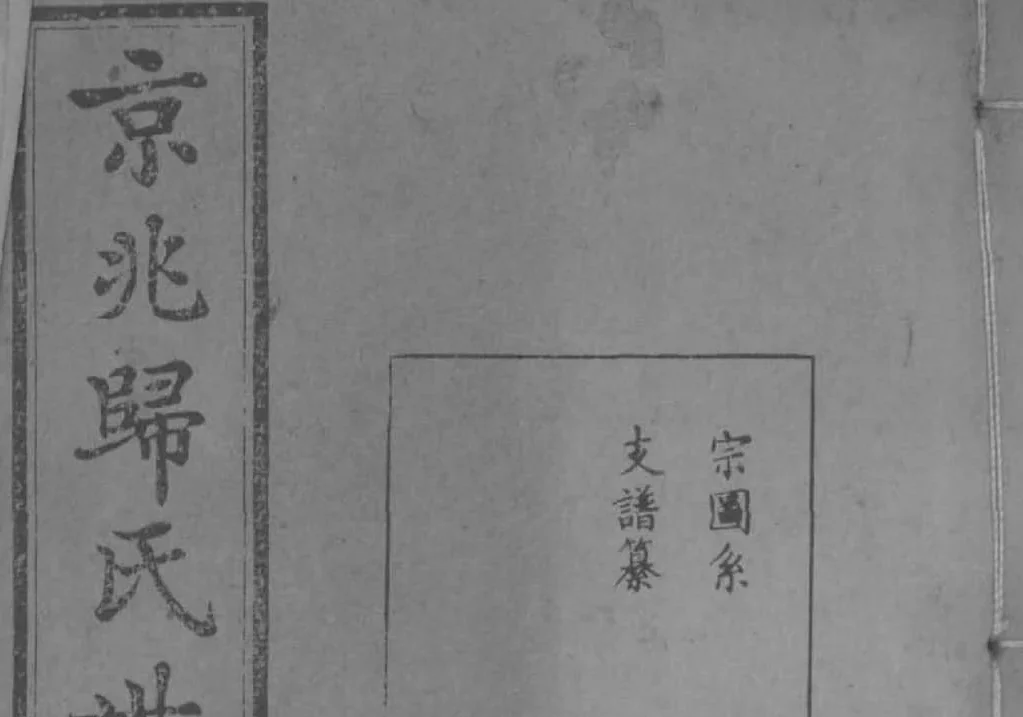 宗圖系
支譜纂
京兆歸氏